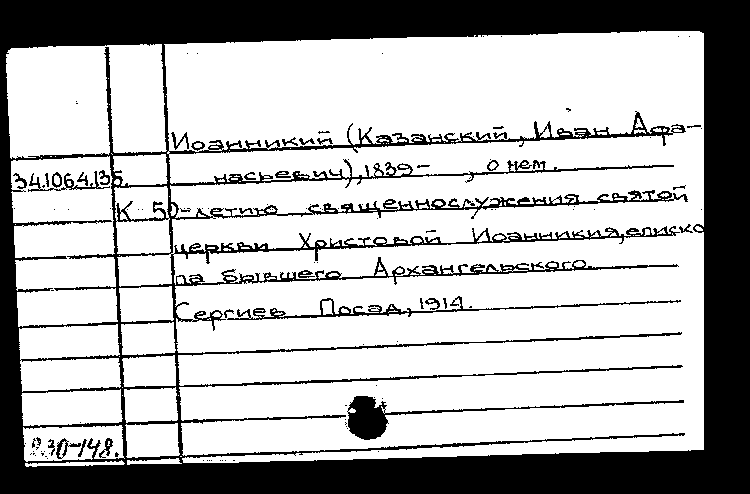 Иоанникий (Казанский, Иван Афа-
34.1064.135. насьевич), 1839- , о нем.
К 50-летию священнослужения святой
церкви Христовой Иоанникия, еписко
па бывшего Архангельского.
Сергиев Посад, 1914.
230-148.